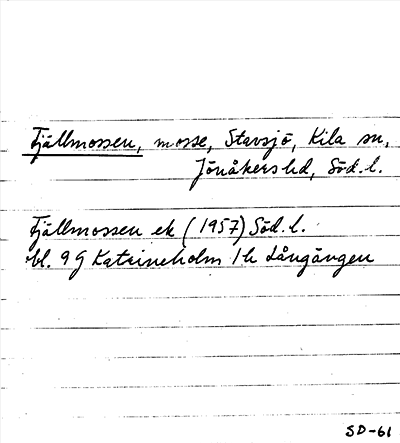 Fjällmossen, mosse, Stavsjö, Kila sn,
Jönåkers hd, Söd. l.
Fjällmossen ek (1957) Söd. l.
bl. 9 G Katrineholm 1 h Långängen
SD-61